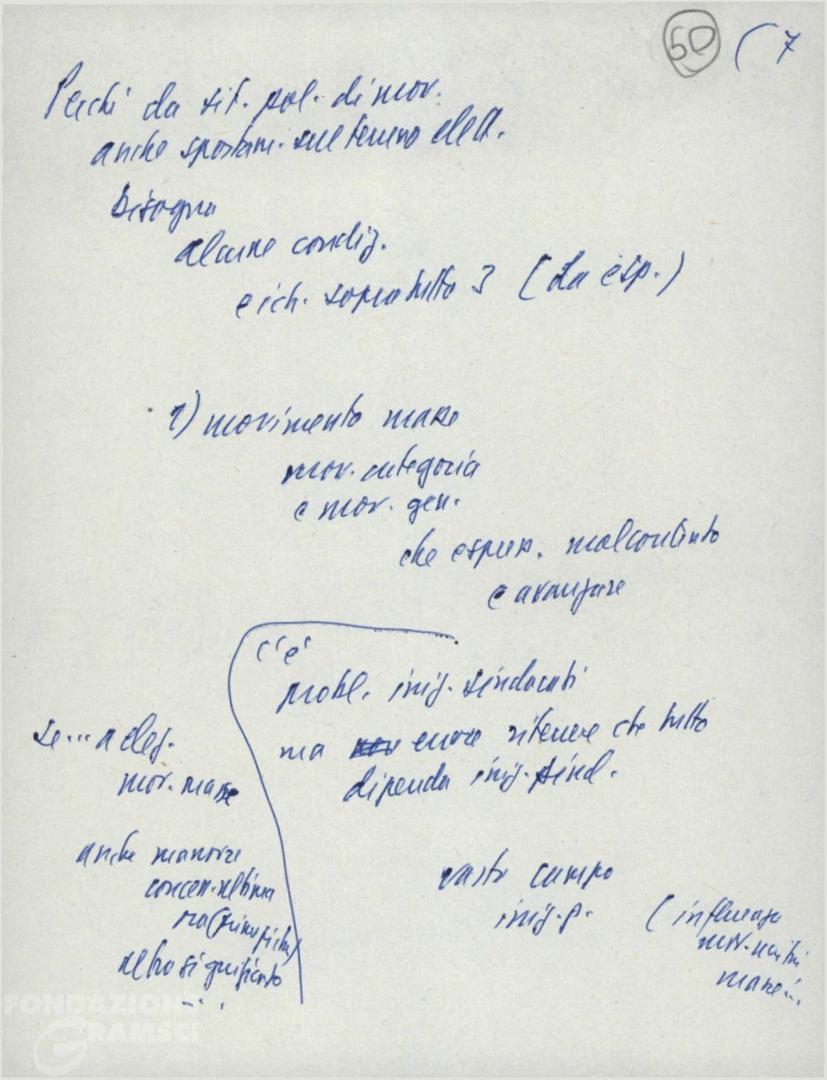 50 ( 7
Perché da sit. pol. di mov.
anche spostam. sul terreno elett.
bisogna
alcune condiz.
e ich. sopratutto 3 (La esp.)
1) movimento masse
mov. categoria
e mov. gen.
che espress. malcontento
e avanzare
c'è
probl. iniz. sindacati
ma errore ritenere che tutto
dipenda iniz. sind.
se... a elez.
mov. masse
anche manovre
ma
altro significato
...
vasto campo
iniz. p.
(influenza
mov.
masse...
FONDAZIONE
GRAMSCI